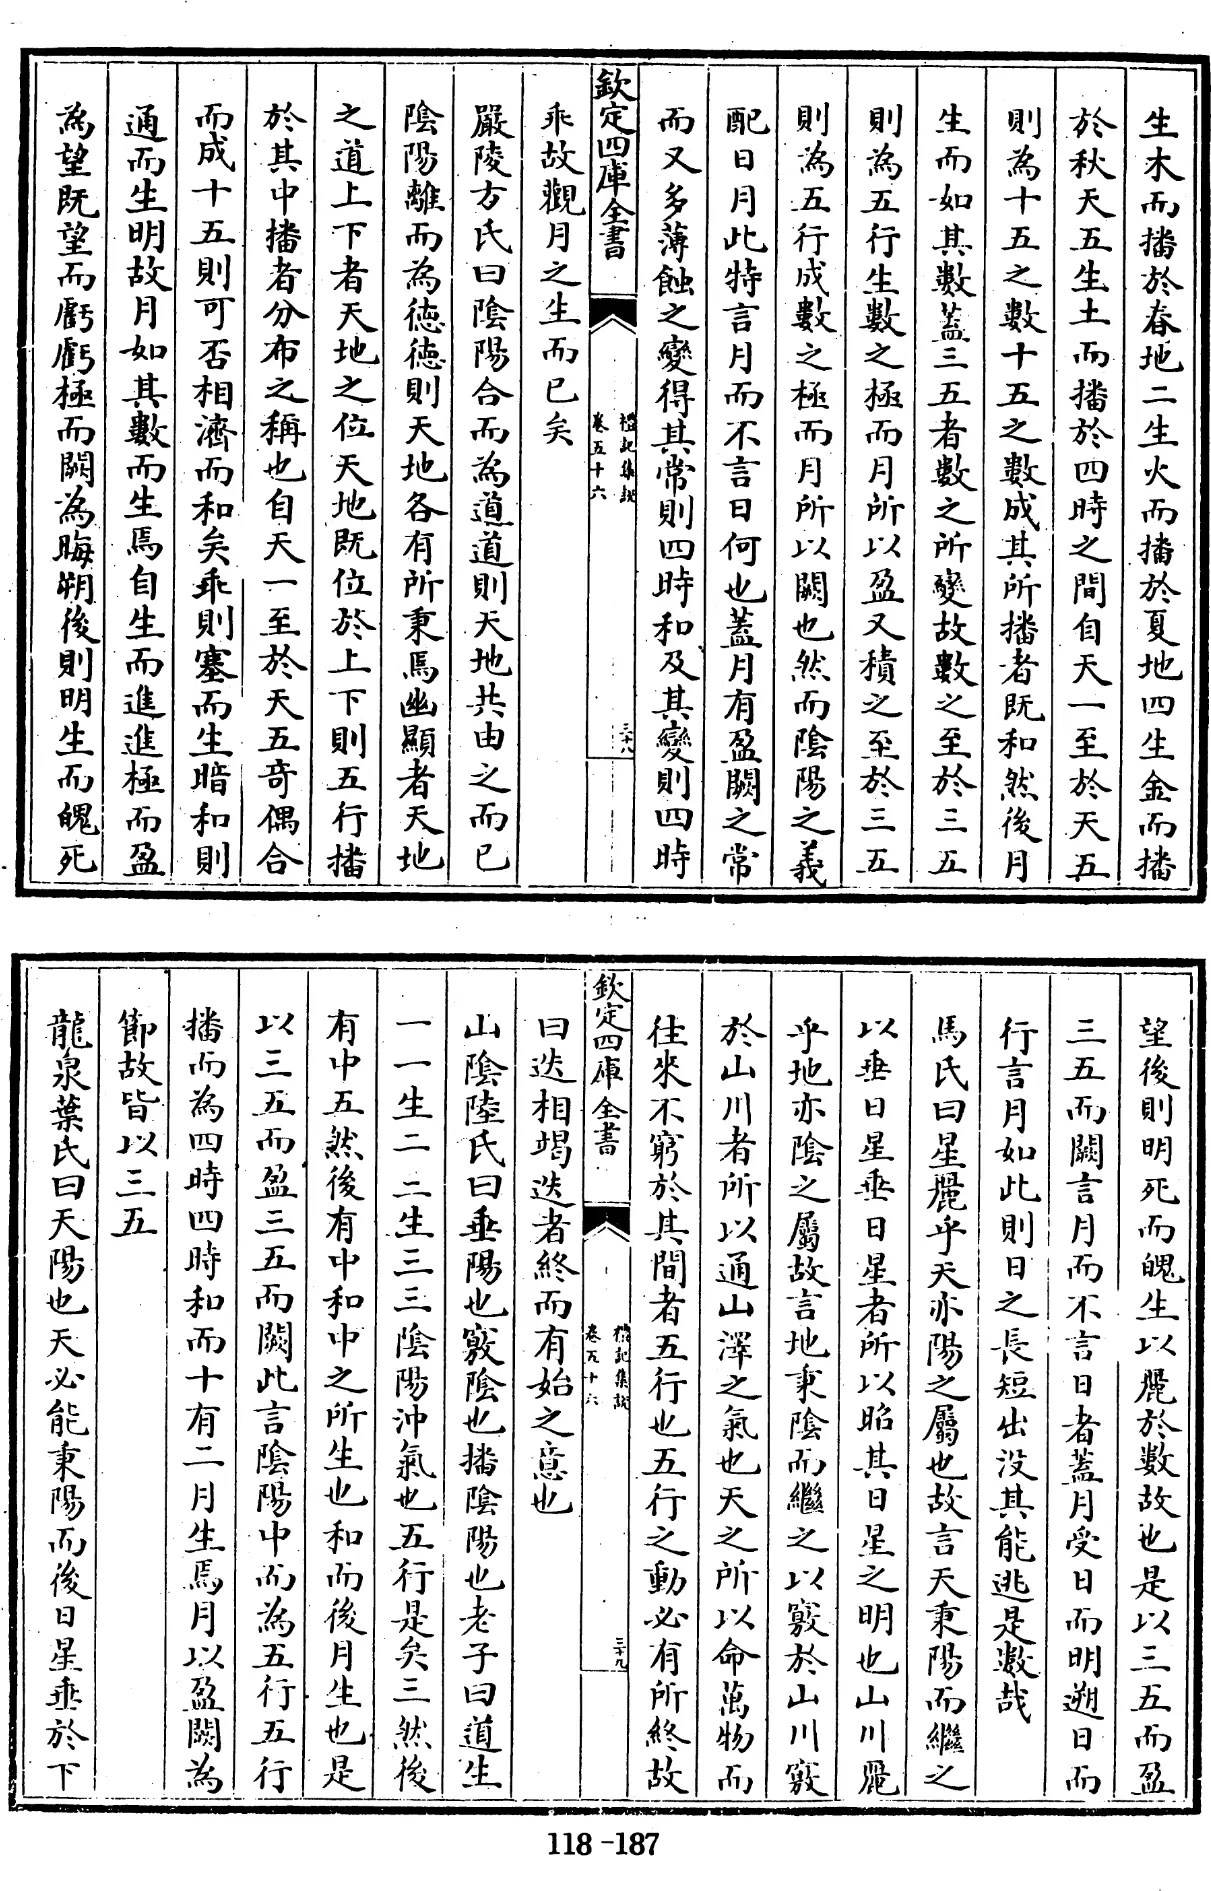 生木而播於春地二生火而播於夏地四生金而播
於秋天五生土而播於四時之間自天一至於天五
則為十五之數十五之數成其所播者既和然後月
生而如其數蓋三五者數之所變故數之至於三五
則為五行生數之極而月所以盈又積之至於三五
則為五行成數之極而月所以闕也然而陰陽之義
配日月此特言月而不言日何也蓋月有盈闕之常
而又多薄蝕之變得其常則四時和及其變則四時
乖故觀月之生而已矣
欽定四庫全書
禮記集說
卷五十六
三十八
嚴陵方氏曰陰陽合而為道道則天地共由之而已
陰陽離而為德德則天地各有所秉焉幽顯者天地
之道上下者天地之位天地既位於上下則五行播
於其中播者分布之稱也自天一至於天五奇偶合
而成十五則可否相濟而和矣乖則塞而生暗和則
通而生明故月如其數而生焉自生而進進極而盈
為望既望而虧虧極而闕為晦朔後則明生而魄死
望後則明死而魄生以麗於數故也是以三五而盈
三五而闕言月而不言日者蓋月受日而明遡日而
行言月如此則日之長短出没其能逃是數哉
馬氏曰星麗乎天亦陽之屬也故言天秉陽而繼之
以垂日星垂日星者所以昭其日星之明也山川麗
乎地亦陰之屬故言地秉陰而繼之以竅於山川竅
於山川者所以通山澤之氣也天之所以命萬物而
往來不窮於其間者五行也五行之動必有所終故
曰迭相竭迭者終而有始之意也
欽定四庫全書
禮記集說
卷五十六
三十九
山陰陸氏曰垂陽也竅陰也播陰陽也老子曰道生
一一生二二生三三陰陽沖氣也五行是矣三然後
有中五然後有中和中之所生也和而後月生也是
以三五而盈三五而闕此言陰陽中而為五行五行
播而為四時四時和而十有二月生焉月以盈闕為
節故皆以三五
龍泉葉氏曰天陽也天必能秉陽而後日星垂於下
118-187